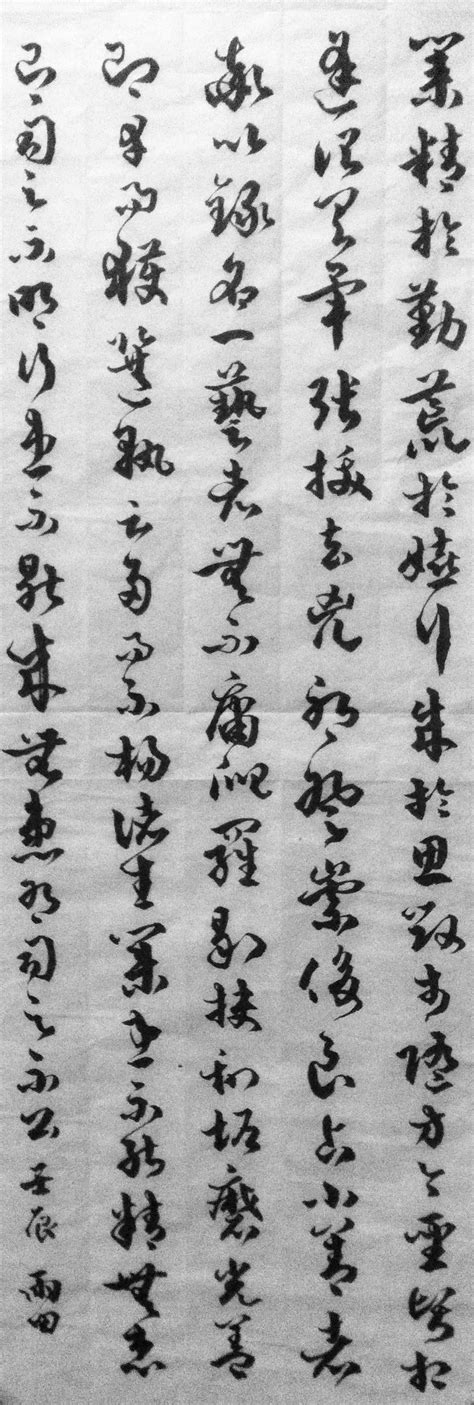 業精於勤荒於嬉行成於思毀於隨方今聖賢相
逢治具畢張拔去兇邪登崇俊良占小善者
率以錄名一藝者無不庸爬羅剔抉刮垢磨光蓋
有幸而獲選孰云多而不揚諸生業患不能精無患
有司之不明行患不能成無患有司之不公 壬辰 雨田